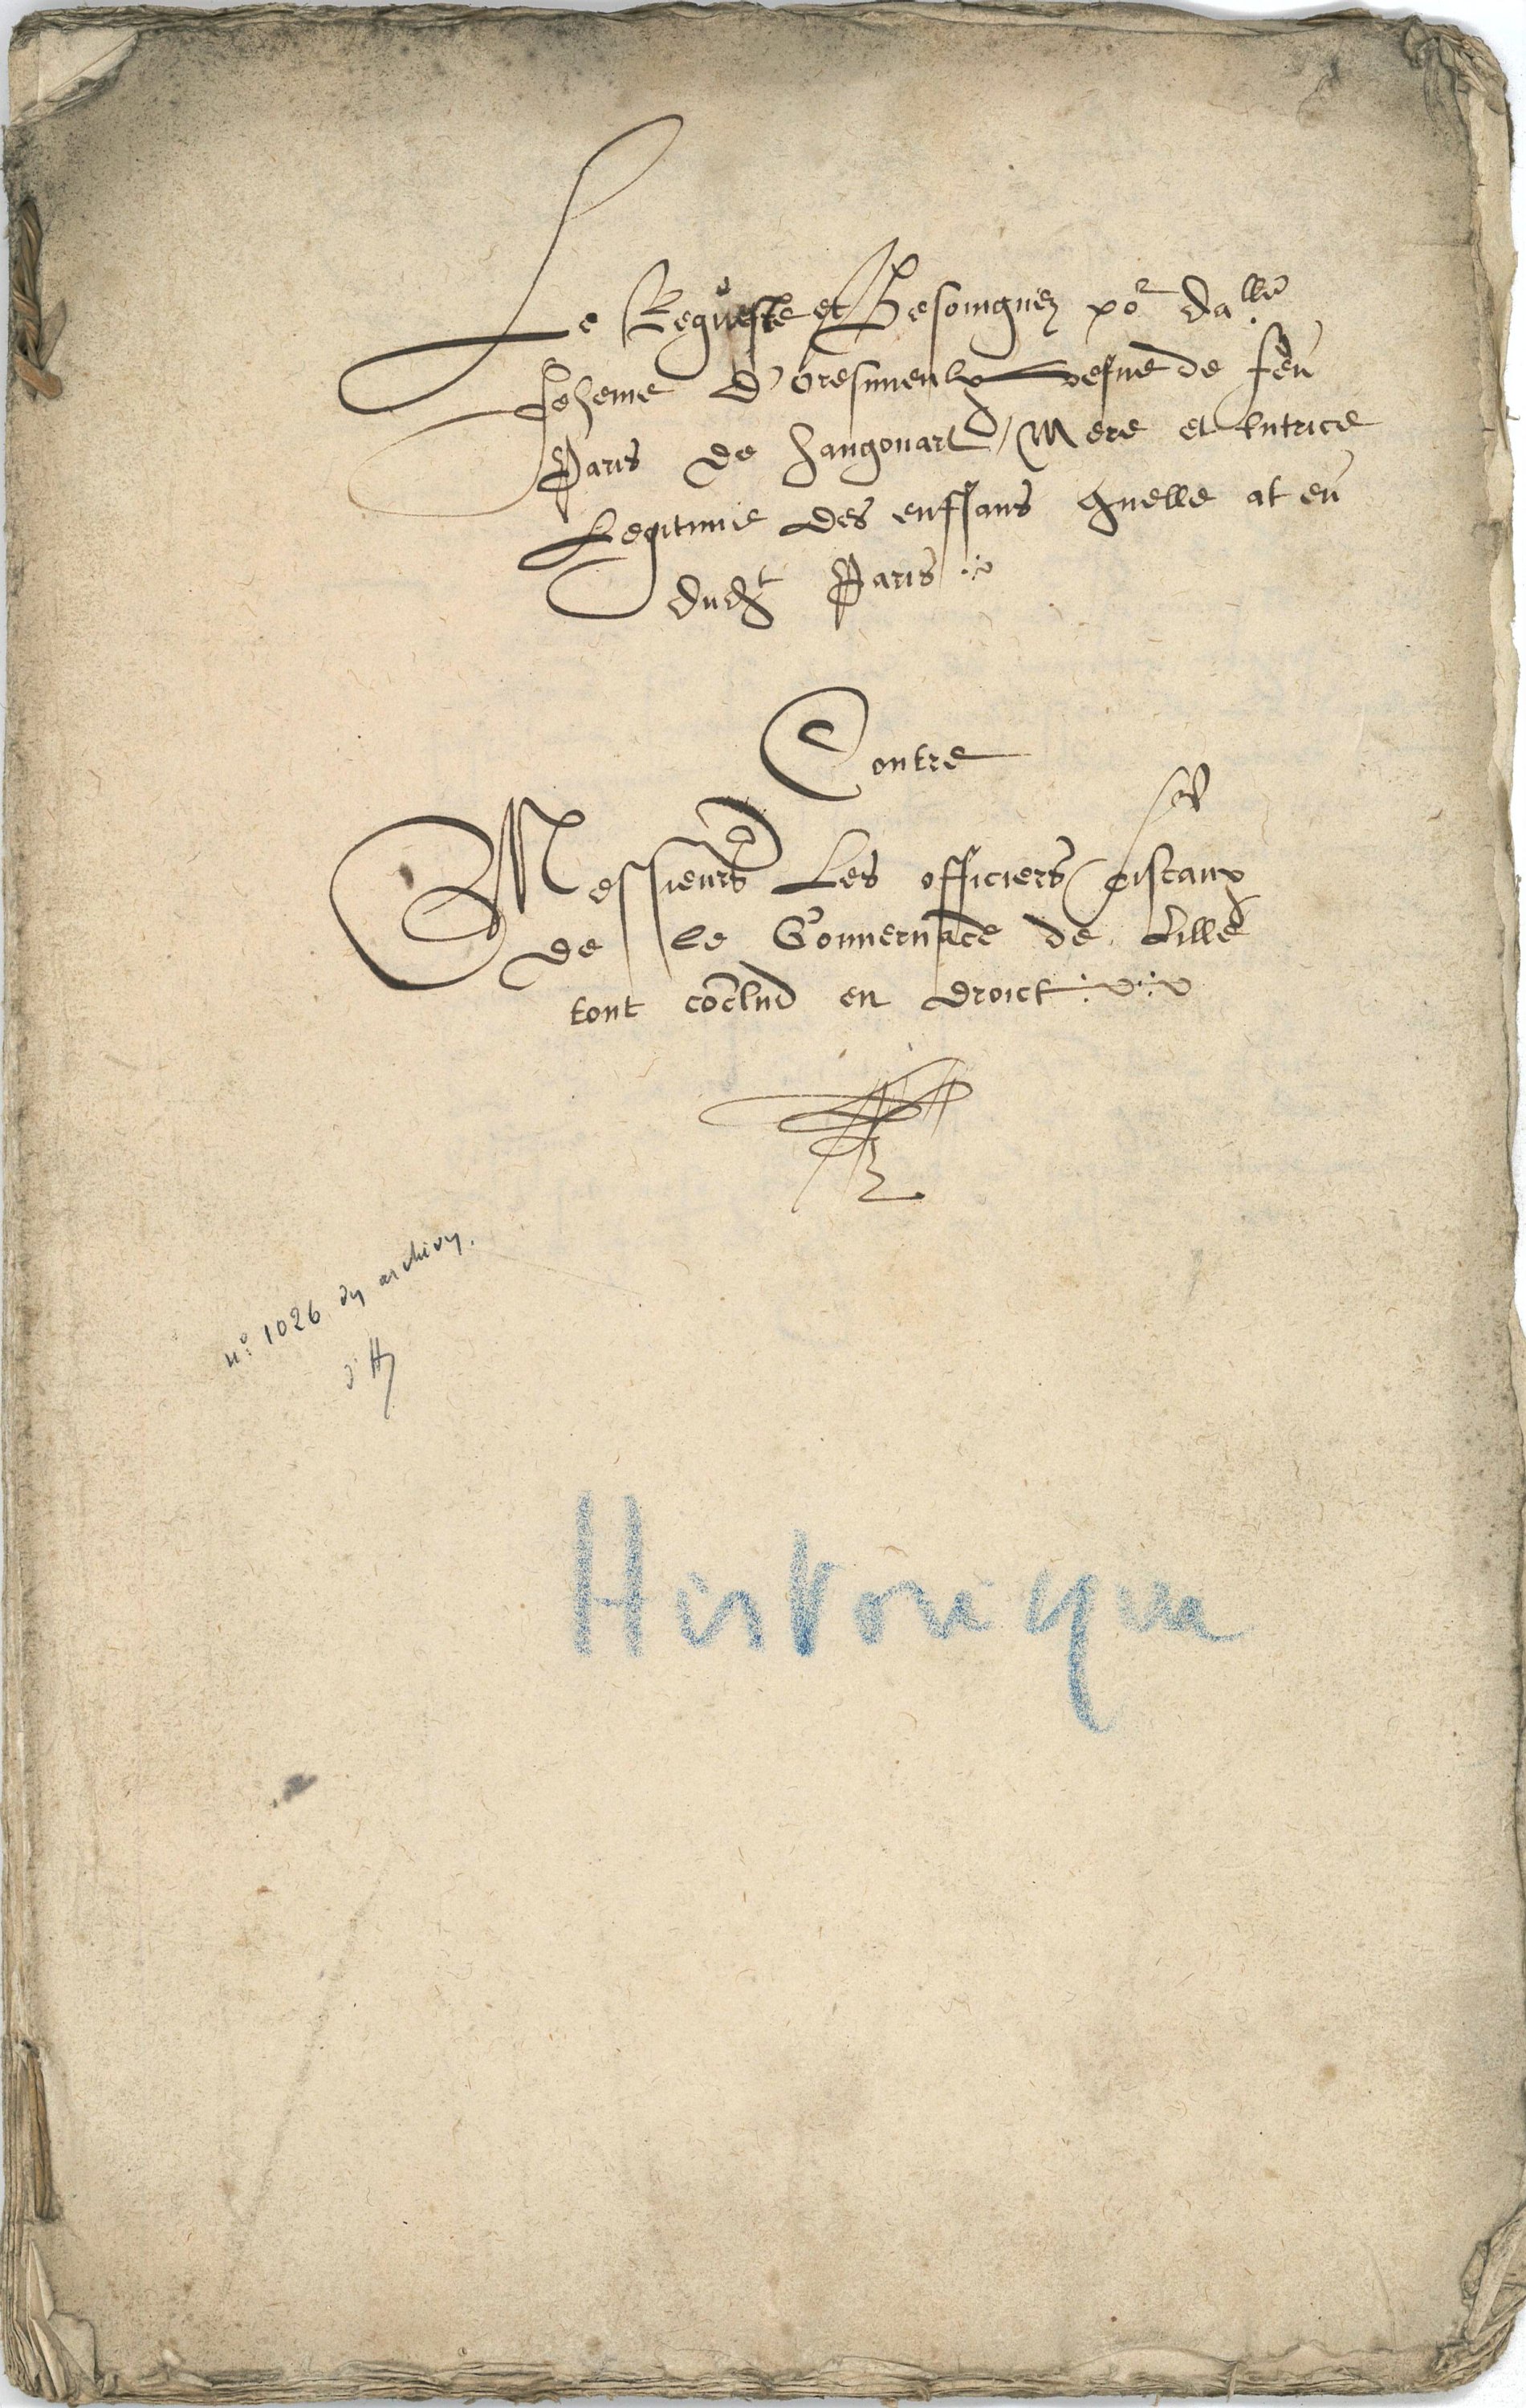 Le Requeste et Besoingniez por da.lle
Jehenne d'Oresmieulx vefue de feu
Paris de hangouart / Mere et tutrice
Legitime des enffans quelle at eu
dudt Paris
Contre
Messieurs Les officiers fiscaux
de le Gouuernace de Lille
tout coclud en droict
n° 1026 des archives.
d'H
Historique